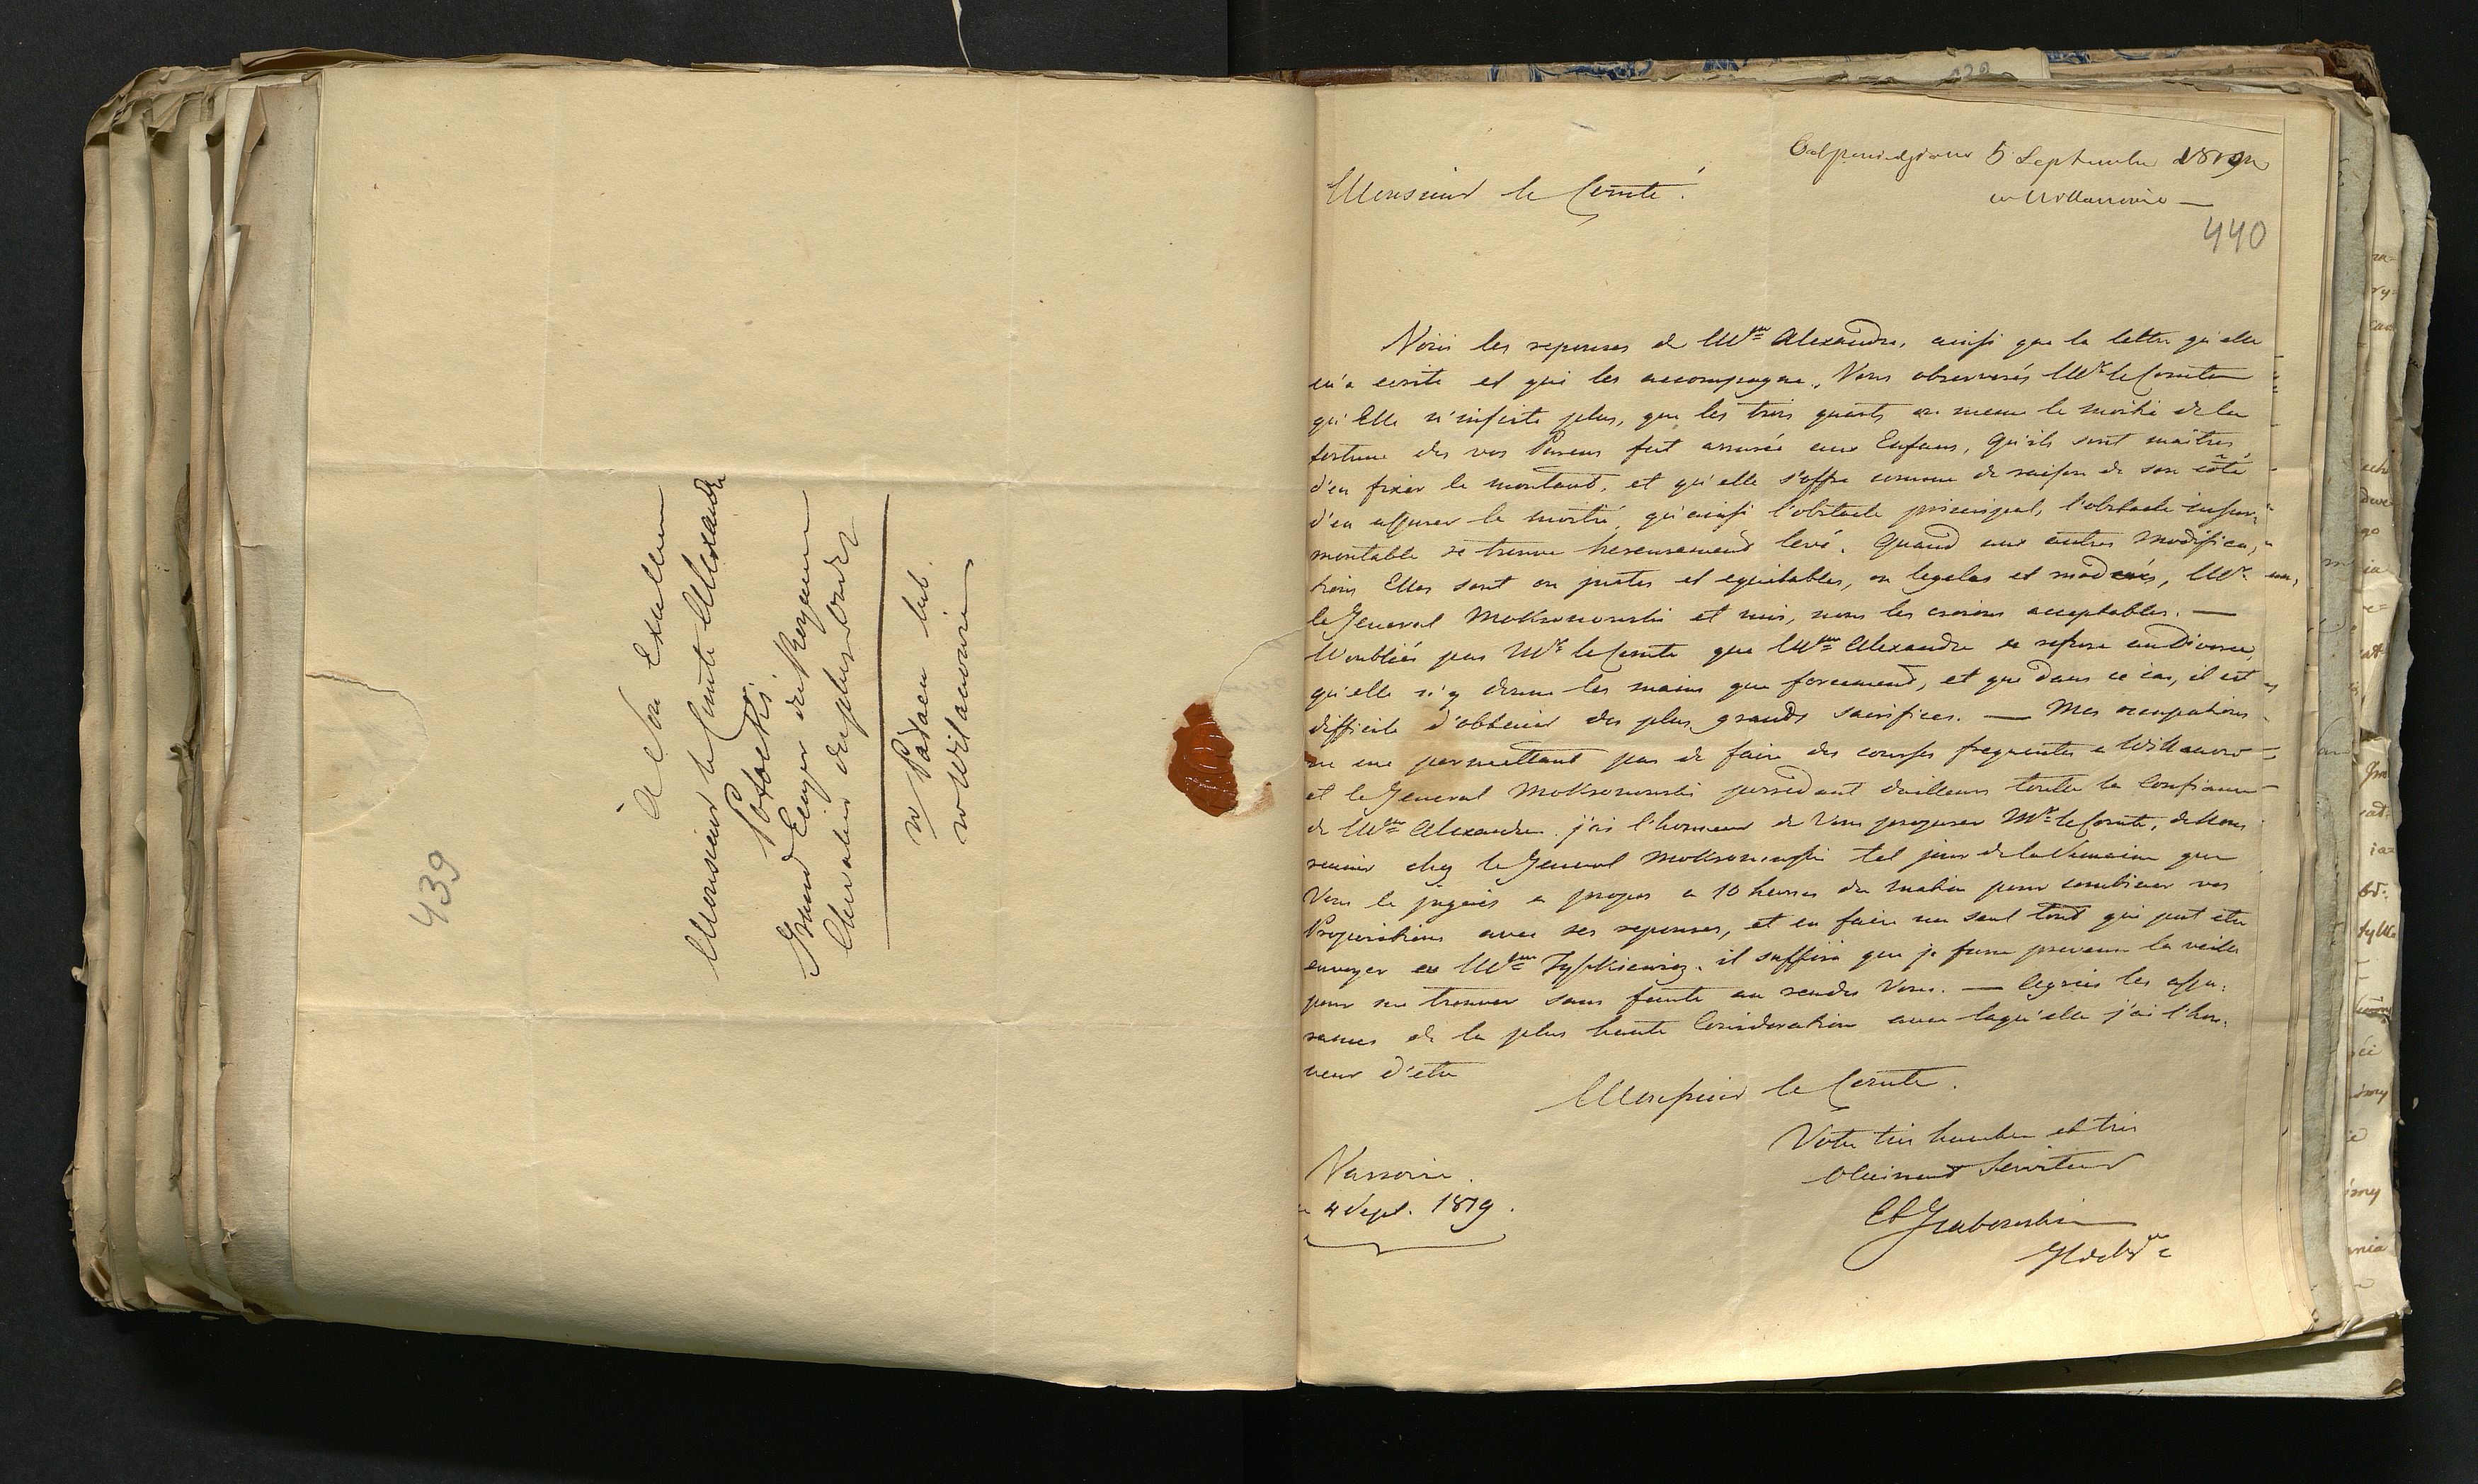 439
à Son Excellence
Monsieur le Comte Alexandre
Potocki
Grand Ecuyer du Royaume
Chevalier de plusieurs Ordr
w Pałacu lub
w Willanowie
Odpowiedziano 5 Septembra 1819
w Willanowie —
Monsieur le Comte!
440
Voici les reponses de Mme Alexandre, ainsi que la lettre qu'elle
m'a ecrite et qui les accompagne. Vous observerés Mr le Comte
qu'Elle n'insiste plus, que les trois quarts ou meme la moitié de la
fortune des vos Parens fut assurée aux Enfans, qu'ils sont maitres
d'en fixer le montant, et qu'elle s'offre comme de raison de son côté
d'en assurer la moitié, qu'ainsi l'obstacle principal, l'obstacle insur:
montable se trouve heureusement levé. Quand aux autres modifica:
tions Elles sont ou justes et equitables, ou legales et moderés, Mr
le General Mokronowski et moi, nous les croions acceptables. —
N'oubliés pas Mr le Comte que Mme Alexandre se refuse au Divorce,
qu'elle n'y donne les mains que forcement, et que dans ce cas, il est
difficile d'obtenir des plus grands sacrifices. — Mes occupations
ne me permettant pas de faire des courses frequentes a Willanow
et le General Mokronowski possedant d'ailleurs toute la Confiance
de Mme Alexandre j'ai l'honneur de Vous proposer Mr le Comte, de Nous
reunir chez le General Mokronowski tel jour de la Semaine que
Vous le jugerés a propos a 10 heures du matin pour combiner vos
Propositions avec ses reponses, et en faire un seul tout qui put etre
envoyer a Mme il suffira que je fusse prevenu la veille
pour me trouver sans faute au rendes Vous. — Agreés les assu:
rances de la plus haute Consideration avec laqu'elle j'ai l'hon:
neur d'etre
Monsieur le Comte.
Votre tres humble et tres
Obeissant Serviteur
Grabowski
Varsovie.
4 Sept. 1819.